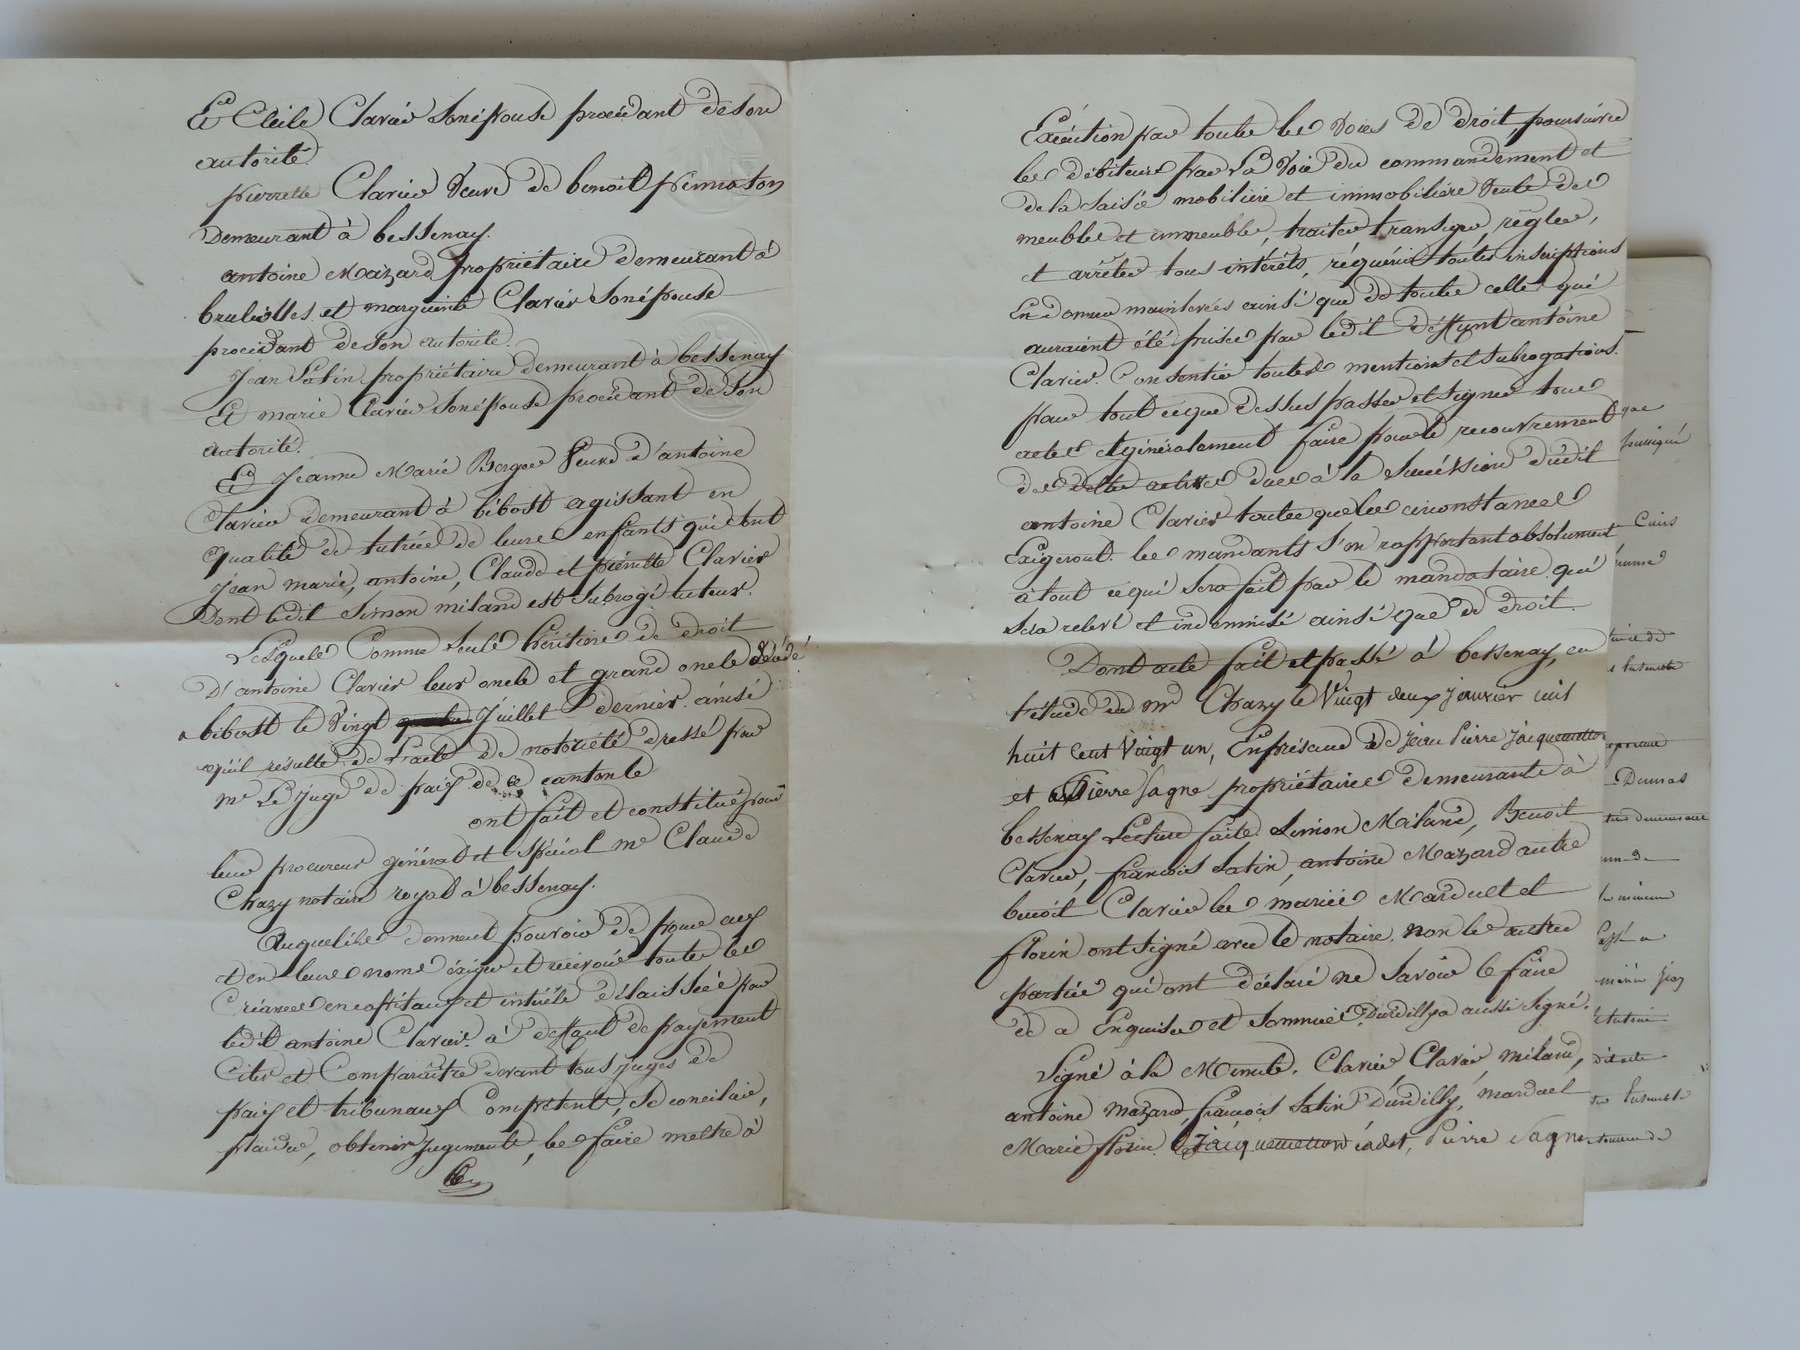 Et Cécile Clavier son épouse procédant de son
autorité.
pierrette Clavier veuve de benoit pinnaton
Demeurant à bessenay.
antoine Mazard propriétaire demeurant à
brulioles et marguerite Clavier son épouse
procédant de son autorité.
Jean Satin propriétaire demeurant à bessenay
Et marie Clavier son épouse procédant de son
autorité.
Et Jeanne Marie Berger Veuve d'antoine
Clavier demeurant à bibost agissant en
qualité de tutrice de leurs enfants qui sont
Jean marie, antoine, Claude et pierrette Clavier
Dont ledit Simon miland est subrogé tuteur.
Lesquels Comme seuls héritiers de droit
D'antoine Clavier leur oncle et grand oncle décédé
à bibost le vingt Juillet dernier ainsi
qu'il résulte de l'acte de notoriété dressé par
mr Le Juge de paix de ce canton le
ont fait et constitué pour
leur procureur général et spécial me Claude
Chazy notaire royal à bessenay.
Auquel ils donnent pouvoir de pour eux
et en leurs noms éxiger et recevoir toutes les
Créances en capitaux et intérêts délaissées par
ledit antoine Clavier à deffaut de payement
Citer et Comparaître devant tous juges de
paix et tribunaux Compétents, se concilier,
plaider, obtenir jugements, les faire mettre à
Exécution par toutes les voies de droit, poursuivre
les débiteurs par La Voie du commandement et
de la saisie mobilière et immobilière vente des
meubles et immeubles, traiter transiger, régler,
et arrêter tous intérêts, réquérir toutes inscriptions
En donner mainlevées ainsi que de toutes celles qui
auraient été prises par ledit déffunt antoine
Clavier. Consentir toutes mentions et subrogations.
pour tout ce que dessus passer et signer tous
actes et généralement faire pour le recouvrement
des dettes actives dues à la succéssion dudit
antoine Clavier toutes que les circonstances
Exigeront. les mandants s'en rapportant absolument
à tout ce qui sera fait par le mandataire qui
sera relevé et indemnisé ainsi que de droit.
Dont acte fait et passé à bessenay, en
l'étude du me Chazy le Vingt deux janvier mil
huit Cent Vingt un, En présence de Jean Pierre Jacquemetton
et Pierre Sagne propriétaires demeurants à
bessenay Lecture faite. Simon Miland, Benoit
Clavier, françois Satin, antoine Mazard autre
benoit Clavier les mariés Marduel et
florin ont signé avec le notaire. non les autres
parties qui ont déclaré ne savoir le faire
de ce Enquises et sommées. Durdilly a aussi signé.
Signé à la Minute. Clavier Clavier, miland,
antoine Mazard, françois Satin Durdilly, marduel
Marie florin. Jacquemetton cadet, Pierre Sagne